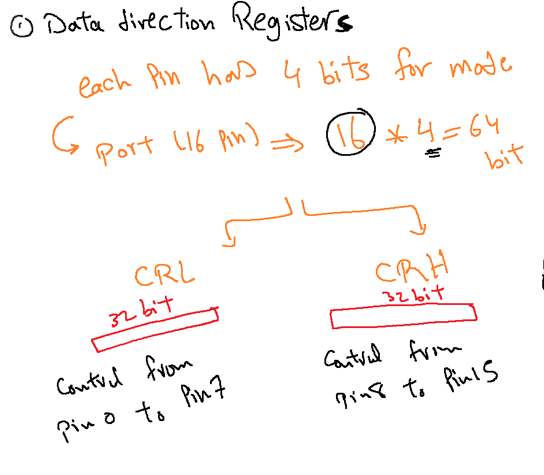 ① Data direction Registers
each Pin has 4 bits for mode
Port (16 Pin) ⇒ 16 * 4 = 64
bit
CRL
32 bit
Control from
pin 0 to Pin7
CRH
32 bit
Control from
pin8 to Pin15